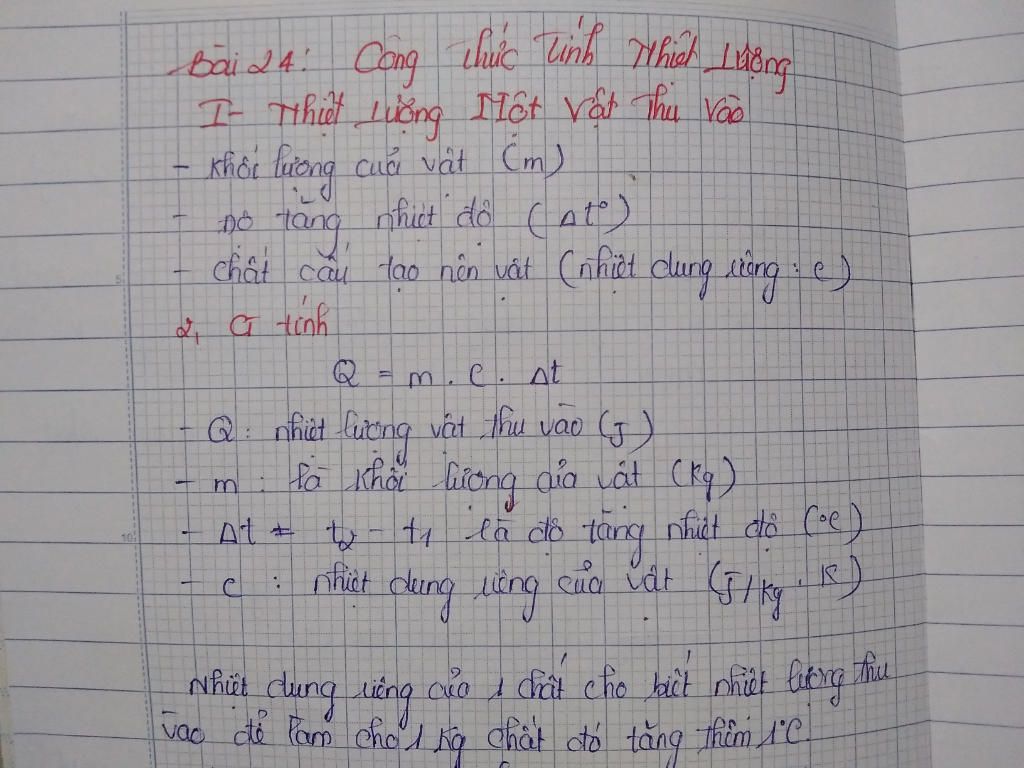 Bài 24: Công thức tính nhiệt lượng
I- Nhiệt lượng một vật thu vào
- Khối lượng của vật (m)
- Độ tăng nhiệt độ (Δt°)
- chất cấu tạo nên vật (nhiệt dung riêng: c)
2, CT tính
Q = m . c . Δt
- Q: nhiệt lượng vật thu vào (J)
- m : là khối lượng của vật (kg)
- Δt = t2 - t1 là độ tăng nhiệt độ (°C)
- c : nhiệt dung riêng của vật (J/kg . K)
Nhiệt dung riêng của 1 chất cho biết nhiệt lượng thu
vào để làm cho 1 kg chất đó tăng thêm 1°C